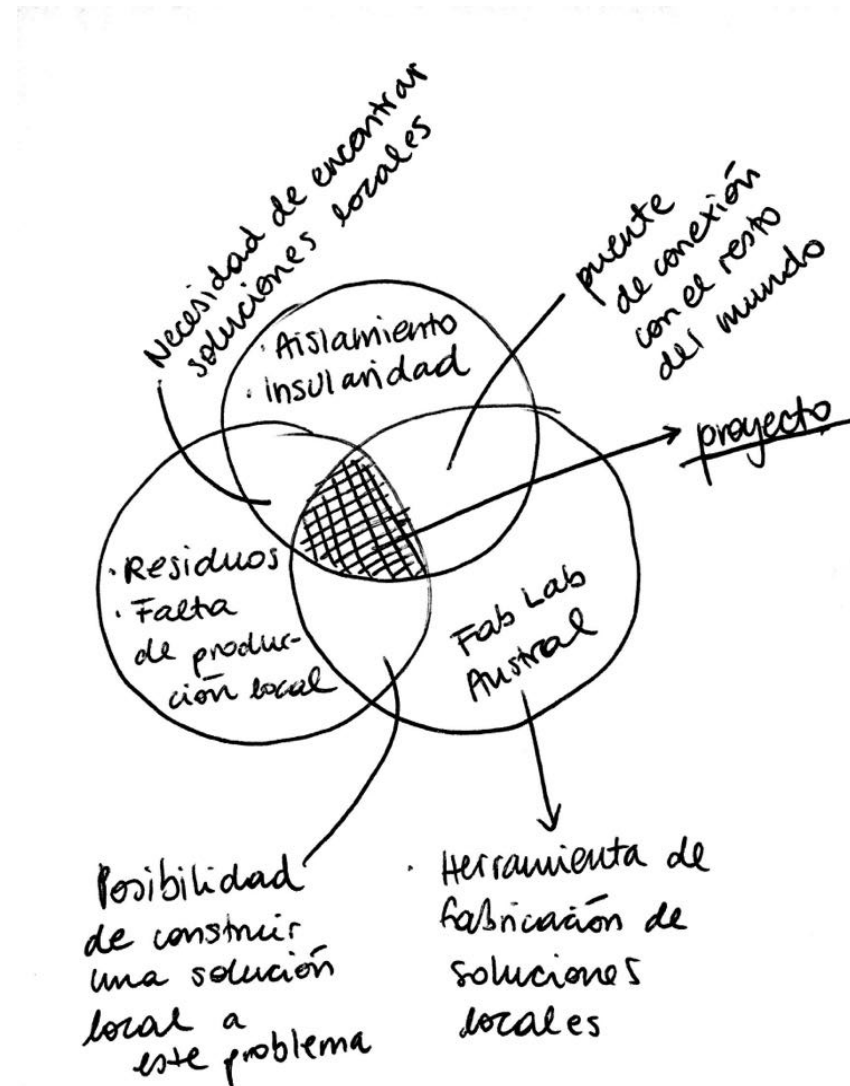 Necesidad de encontrar
soluciones locales
puente
de conexión
con el resto
del mundo
· Aislamiento
· insularidad
proyecto
· Residuos
· Falta
de produc-
ción local
Fab Lab
Austral
Posibilidad
de construir
una solución
local a
este problema
· Herramienta de
fabricación de
soluciones
locales